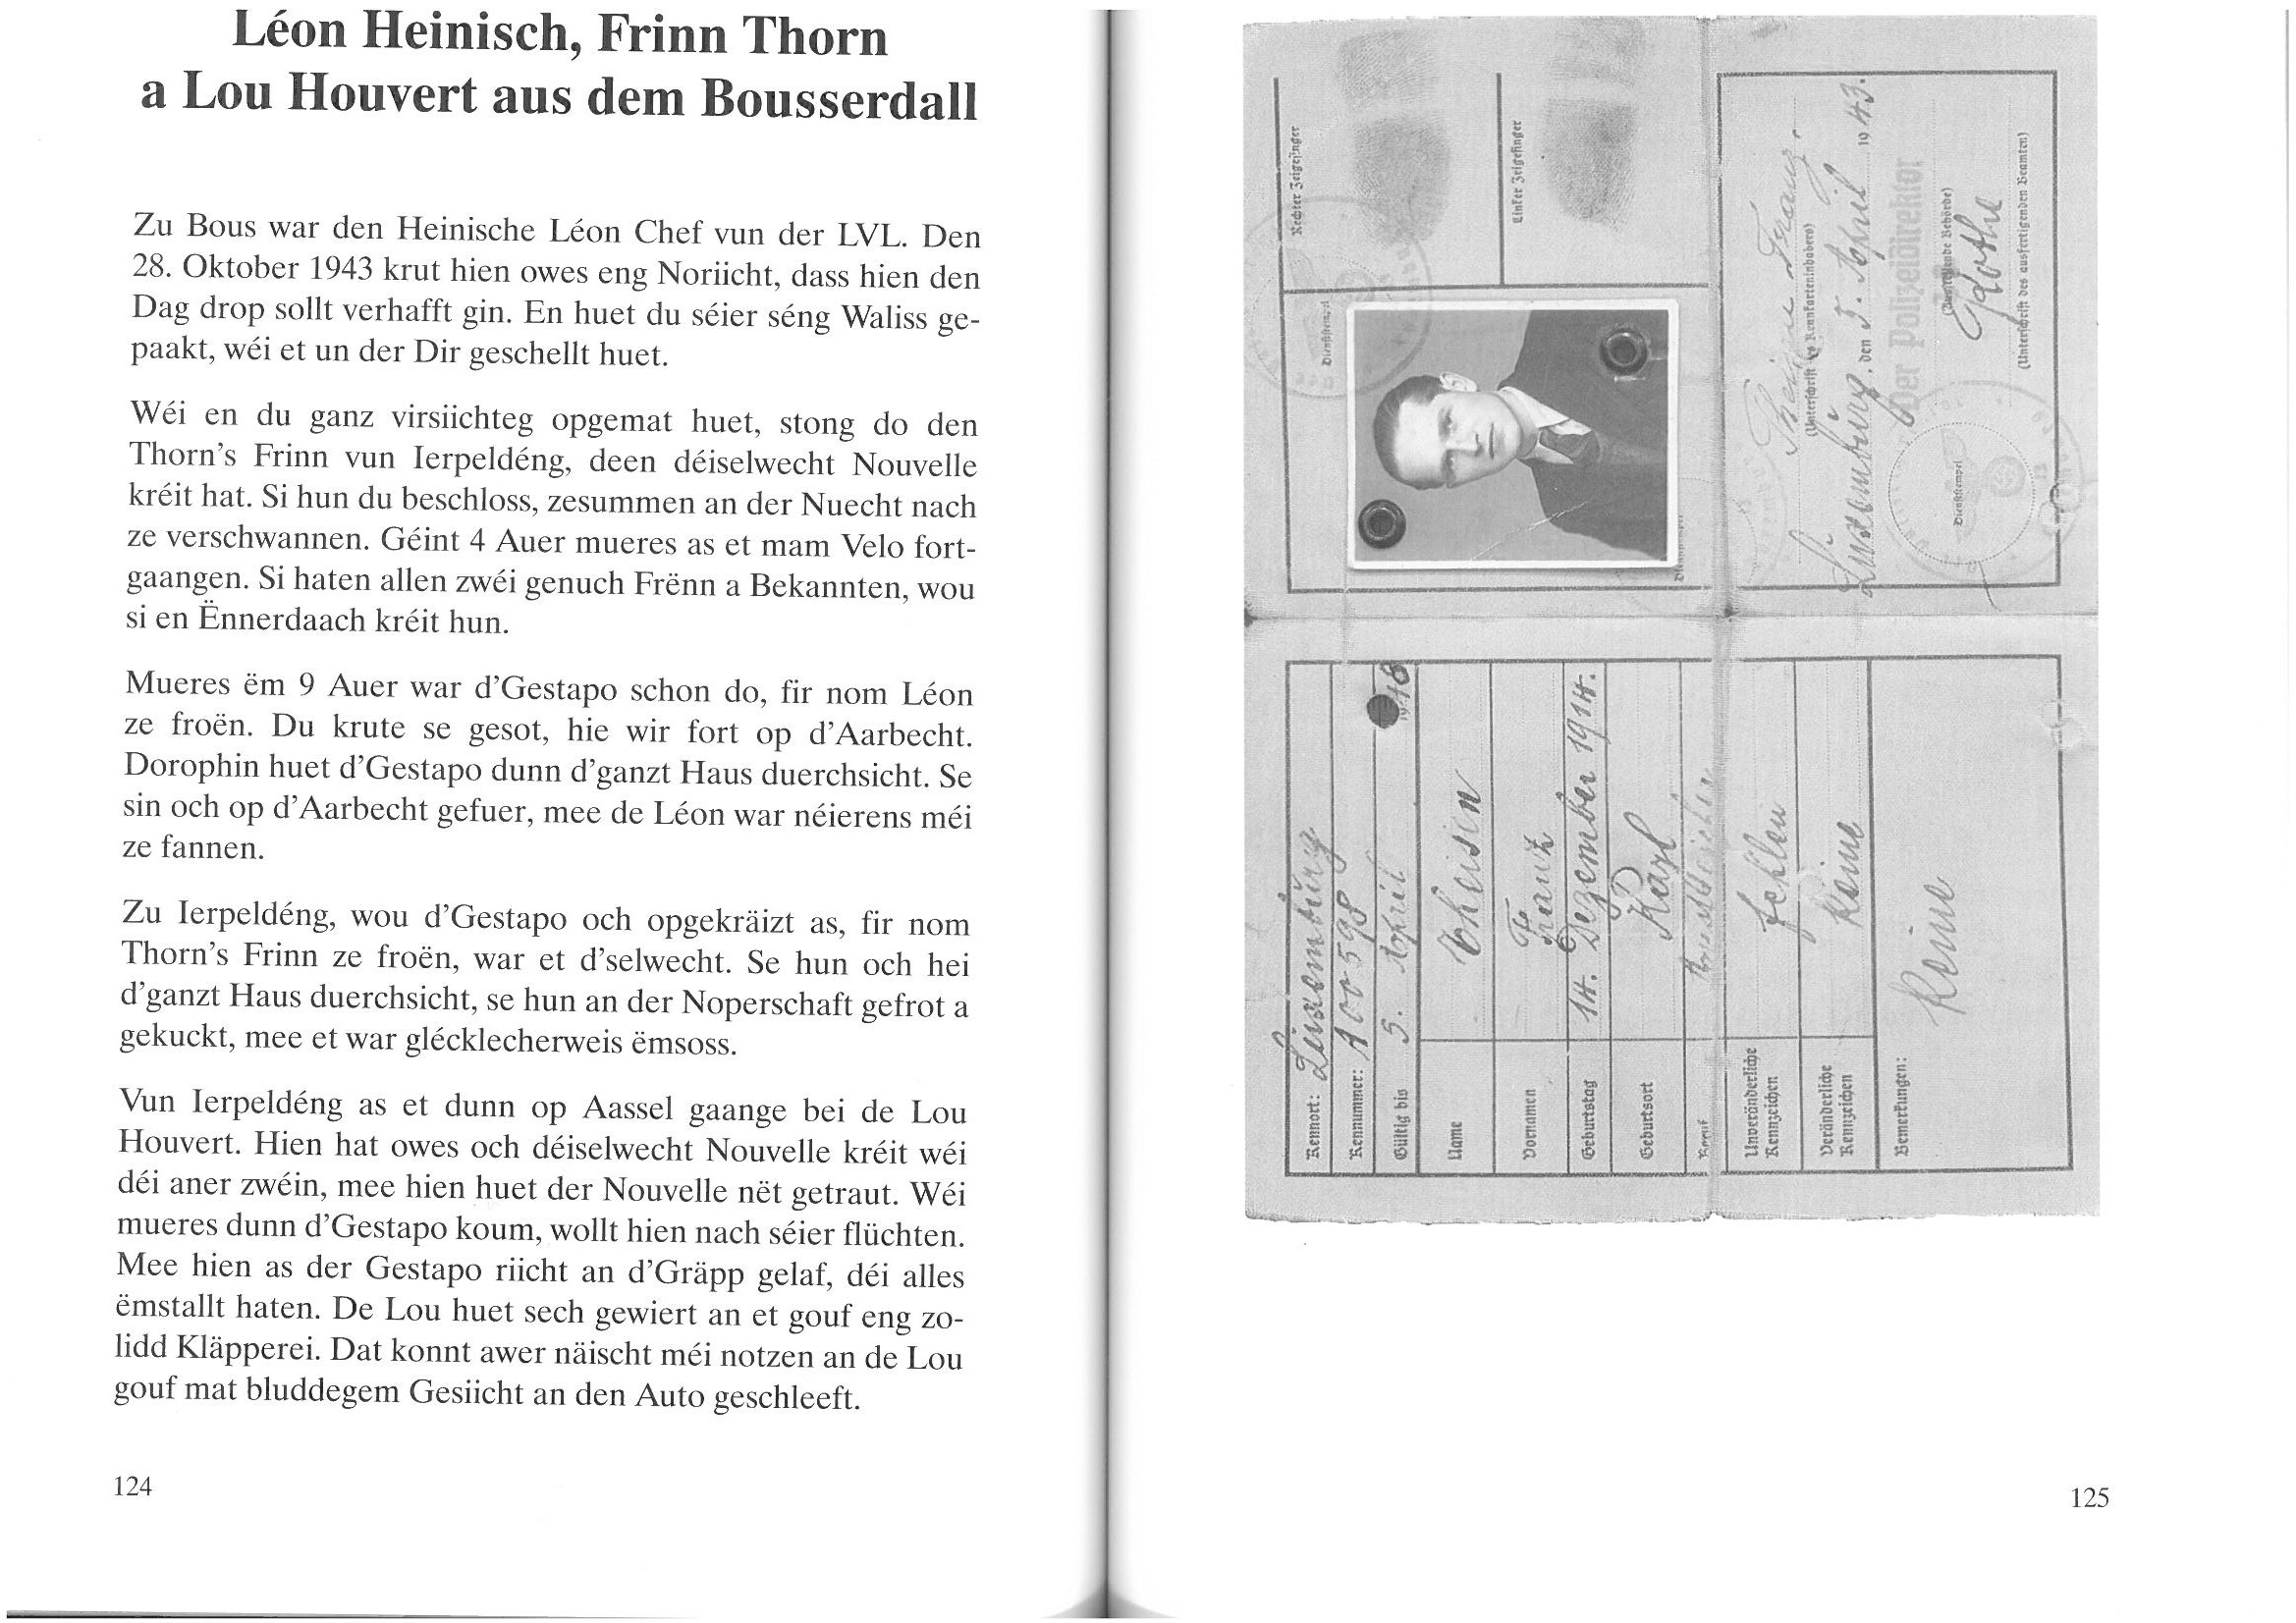 Léon Heinisch, Frinn Thorn
a Lou Houvert aus dem Bousserdall
Zu Bous war den Heinische Léon Chef vun der LVL. Den
28. Oktober 1943 krut hien owes eng Noriicht, dass hien den
Dag drop sollt verhafft gin. En huet du séier séng Waliss ge-
paakt, wéi et un der Dir geschellt huet.
Wéi en du ganz virsiichteg opgemat huet, stong do den
Thorn's Frinn vun Ierpeldéng, deen déiselwecht Nouvelle
kréit hat. Si hun du beschloss, zesummen an der Nuecht nach
ze verschwannen. Géint 4 Auer mueres as et mam Velo fort-
gaangen. Si haten allen zwéi genuch Frënn a Bekannten, wou
si en Ënnerdaach kréit hun.
Mueres ëm 9 Auer war d'Gestapo schon do, fir nom Léon
ze froën. Du krute se gesot, hie wir fort op d'Aarbecht.
Dorophin huet d'Gestapo dunn d'ganzt Haus duerchsicht. Se
sin och op d'Aarbecht gefuer, mee de Léon war néierens méi
ze fannen.
Zu Ierpeldéng, wou d'Gestapo och opgekräizt as, fir nom
Thorn's Frinn ze froën, war et d'selwecht. Se hun och hei
d'ganzt Haus duerchsicht, se hun an der Noperschaft gefrot a
gekuckt, mee et war glécklecherweis ëmsoss.
Vun Ierpeldéng as et dunn op Aassel gaange bei de Lou
Houvert. Hien hat owes och déiselwecht Nouvelle kréit wéi
déi aner zwéin, mee hien huet der Nouvelle nët getraut. Wéi
mueres dunn d'Gestapo koum, wollt hien nach séier flüchten.
Mee hien as der Gestapo riicht an d'Gräpp gelaf, déi alles
ëmstallt haten. De Lou huet sech gewiert an et gouf eng zo-
lidd Kläpperei. Dat konnt awer näischt méi notzen an de Lou
gouf mat bluddegem Gesiicht an den Auto geschleeft.
124
Rechter Zeigefinger
Linker Zeigefinger
Dienststempel
Theisen Franz.
(Unterschrift des Kennkarteninhabers)
Luxemburg, den 5. April 1943.
Der Polizeidirektor
(Ausstellende Behörde)
Dienststempel
(Unterschrift des ausfertigenden Beamten)
Kennort: Luxemburg
Kennummer: A 00598
Gültig bis 5. April 1948
Name Theisen
Vornamen Franz
Geburtstag 14. Dezember 1914.
Geburtsort Karl
Beruf
Unveränderliche Kennzeichen fehlen
Veränderliche Kennzeichen Keine
Bemerkungen: Keine
125